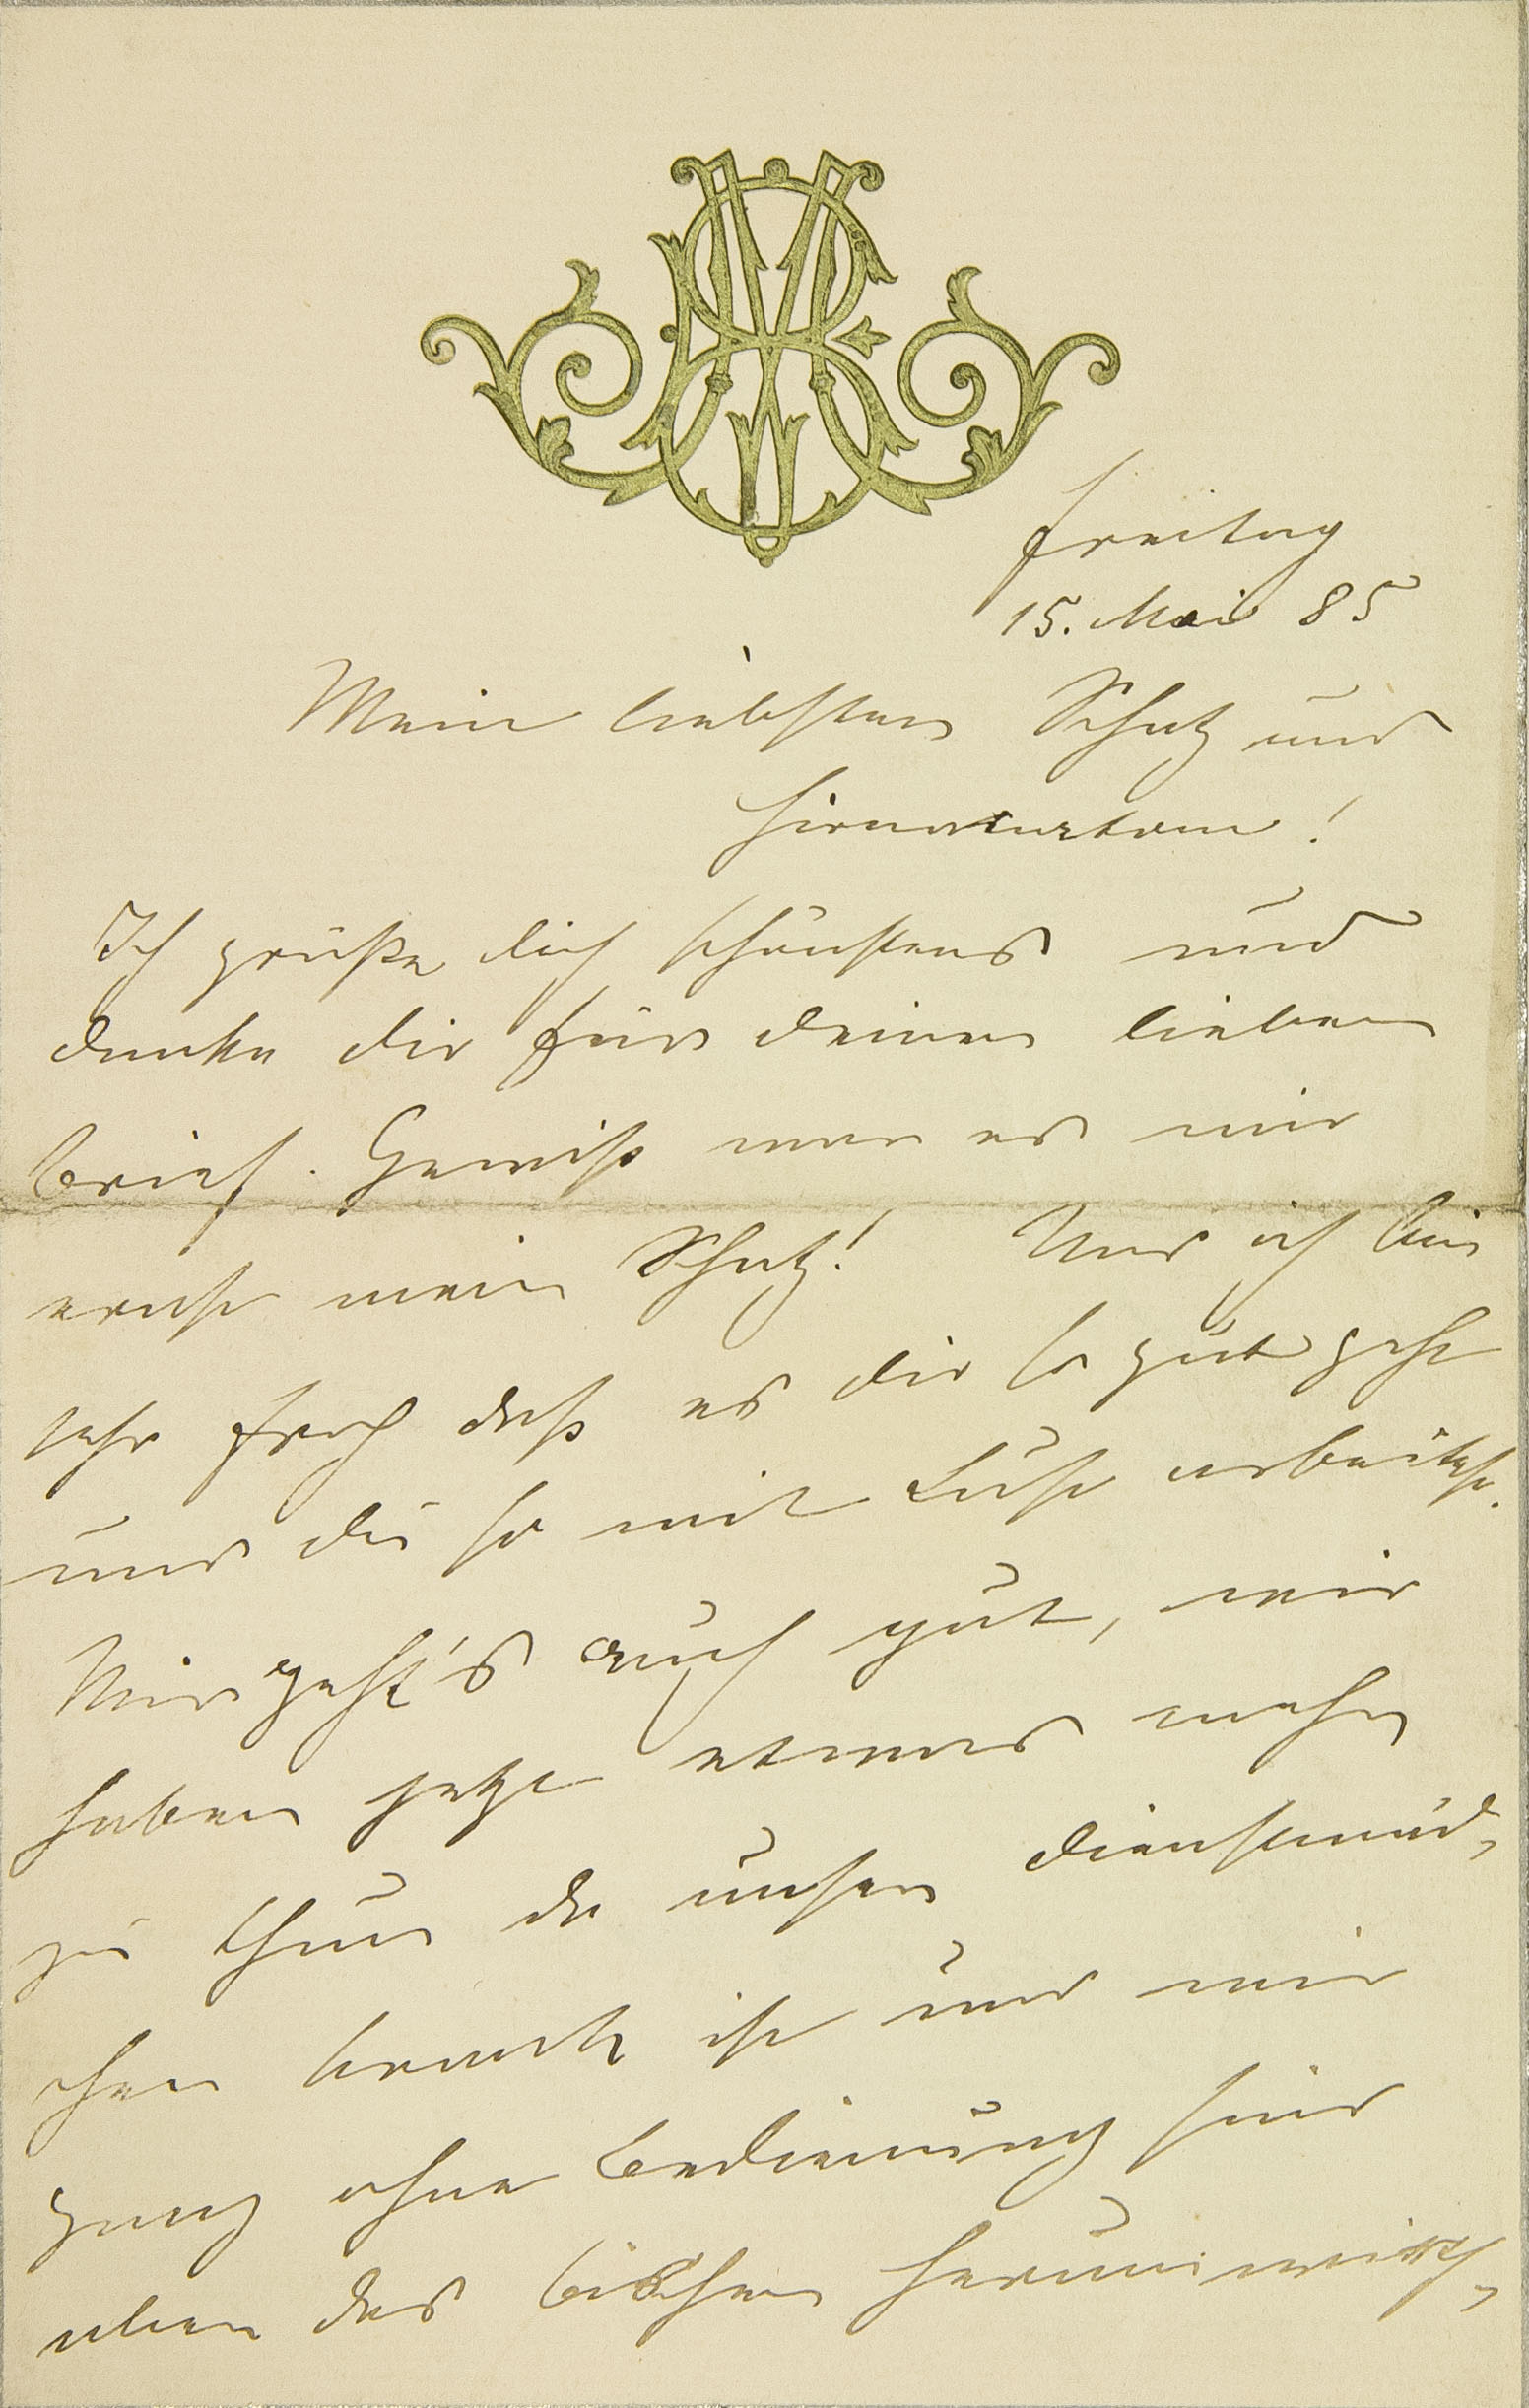 Freitag
15. Mai 85
Mein liebster Schatz und
Hirnarterie!
Ich grüße dich schönstens und
danke dir für deinen lieben
Brief. Gewiß war es mir
ernst mein Schatz! Und ich bin
sehr froh daß es dir so gut geht
und du so mit Lust arbeitest.
Mir geht's auch gut, wir
haben jetzt etwas mehr
zu thun da unser Dienstmäd-
chen krank ist und wir
ganz ohne Bedienung sind
aber das bischen herumwirth-